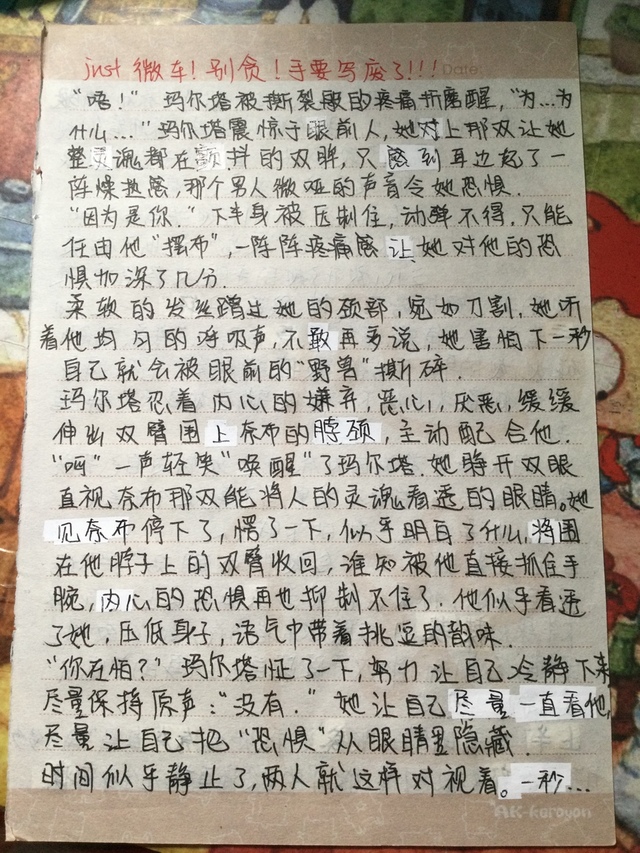 just 微车！别贪！手要写废了!!! Date:
“唔！”玛尔塔被撕裂般的疼痛折磨醒，“为…为
什么…”玛尔塔震惊于眼前人，她对上那双让她
整灵魂都在颤抖的双眸，只感到耳边起了一
阵燥热感，那个男人微哑的声音令她恐惧．
“因为是你．”下半身被压制住，动弹不得，只能
任由他“摆布”，一阵阵疼痛感让她对他的恐
惧加深了几分．
柔软的发丝蹭过她的颈部，宛如刀割，她听
着他均匀的呼吸声，不敢再多说，她害怕下一秒
自己就会被眼前的“野兽”撕碎．
玛尔塔忍着内心的嫌弃，恶心，厌恶，缓缓
伸出双臂围上奈布的脖颈，主动配合他．
“呵”一声轻笑“唤醒”了玛尔塔．她睁开双眼
直视奈布那双能将人的灵魂看透的眼睛。她
见奈布停下了，愣了一下，似乎明白了什么，将围
在他脖子上的双臂收回，谁知被他直接抓住手
腕，内心的恐惧再也抑制不住了．他似乎看透
了她，压低身子，语气中带着挑逗的韵味．
“你在怕？”玛尔塔怔了一下，努力让自己冷静下来
尽量保持原声：“没有．”她让自己尽量一直看他，
尽量让自己把“恐惧”从眼睛里隐藏．
时间似乎静止了，两人就这样对视着。一秒…
AK-keroyon